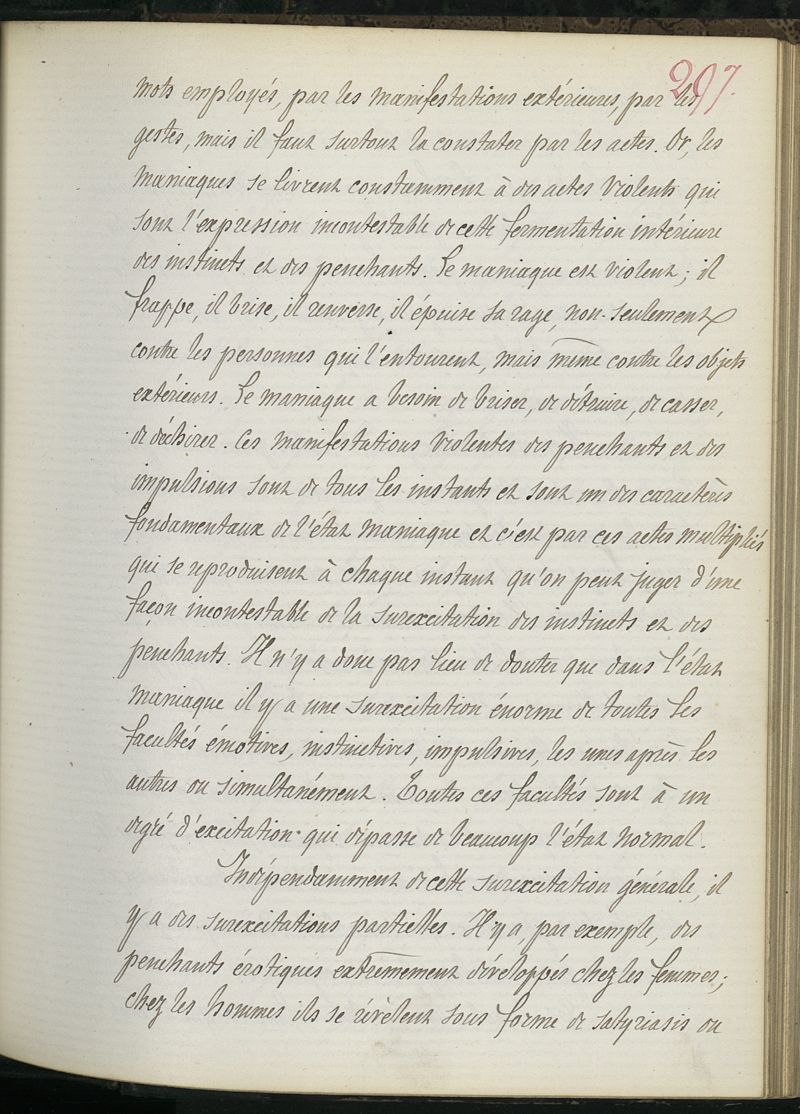 297.
mots employés, par les manifestations extérieures, par les
gestes, mais il faut surtout la constater par les actes. Or, les
maniaques se livrent constamment à des actes violents qui
sont l'expression incontestable de cette fermentation intérieure
des instincts et des penchants. Le maniaque est violent ; il
frappe, il brise, il renverse, il épuise sa rage, non-seulement
contre les personnes qui l'entourent, mais même contre les objets
extérieurs. Le maniaque a besoin de briser, de détruire, de casser,
de déchirer. Ces manifestations violentes des penchants et des
impulsions sont de tous les instants et sont un des caractères
fondamentaux de l'état maniaque et c'est par ces actes multipliés
qui se reproduisent à chaque instant qu'on peut juger d'une
façon incontestable de la surexcitation des instincts et des
penchants. Il n'y a donc pas lieu de douter que dans l'état
maniaque il y a une surexcitation énorme de toutes les
facultés émotives, instinctives, impulsives, les unes après les
autres ou simultanément. Toutes ces facultés sont à un
degré d'excitation qui dépasse de beaucoup l'état normal.
Indépendamment de cette surexcitation générale, il
y a des surexcitations partielles. Il y a, par exemple, des
penchants érotiques extrêmement développés chez les femmes ;
chez les hommes ils se révèlent sous forme de satyriasis ou